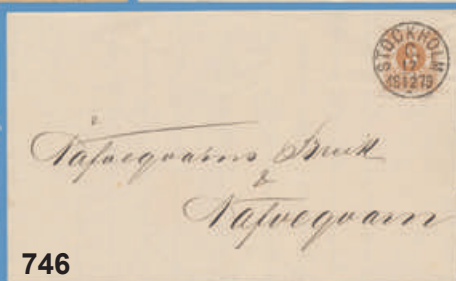 STOCKHOLM
C
17
Nafveqvarns Bruk
&
Nafveqvarn
746